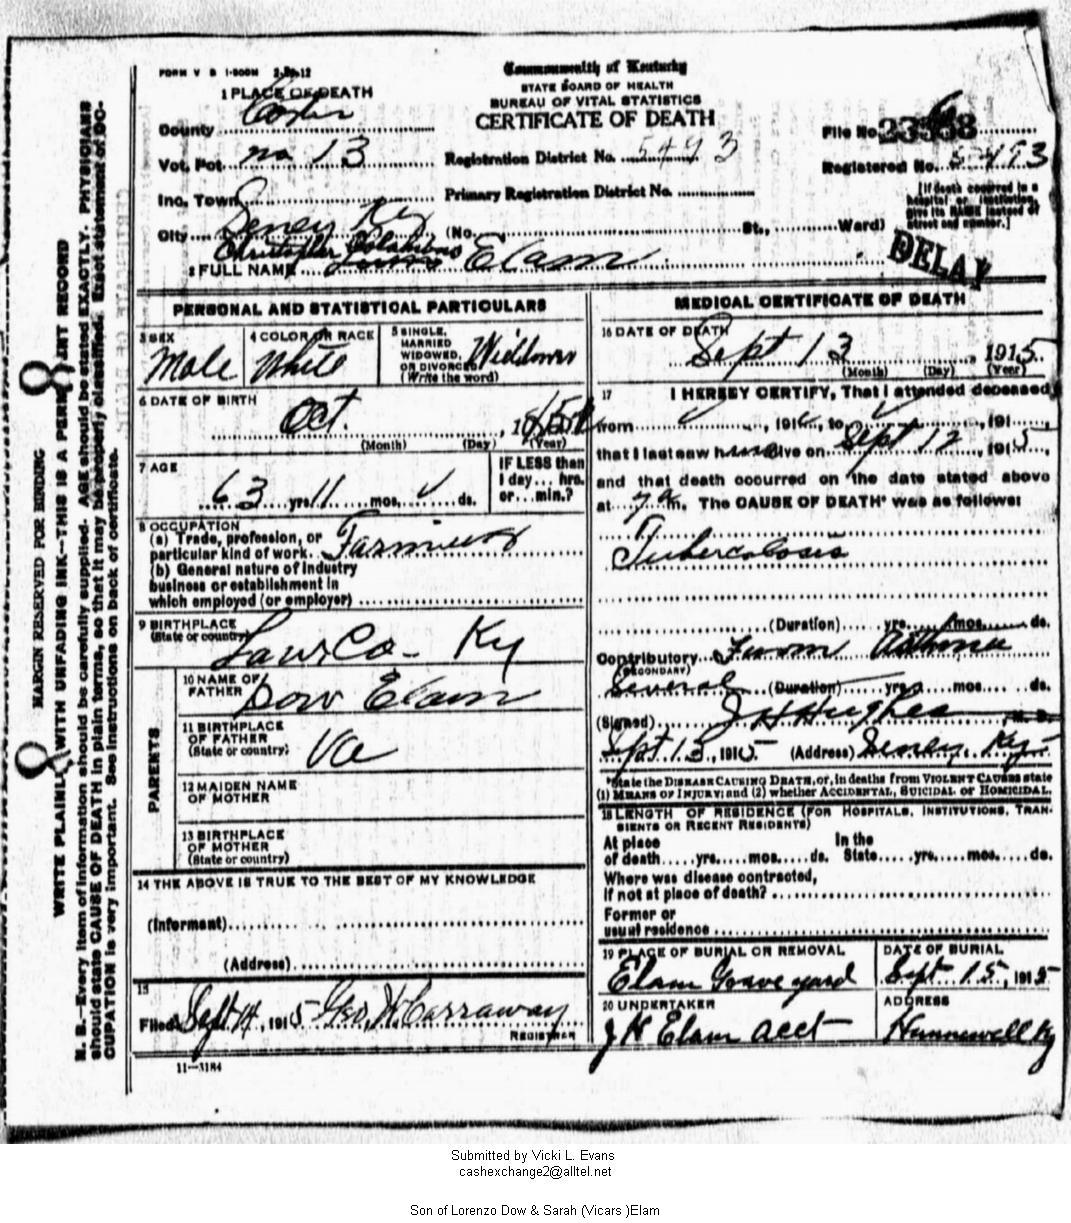 FORM V S 1-500M 2-20-12
Commonwealth of Kentucky
STATE BOARD OF HEALTH
BUREAU OF VITAL STATISTICS
CERTIFICATE OF DEATH
1 PLACE OF DEATH
County Carter
Vot. Pct. no 13
Inc. Town
City Seney Ky
Registration District No. 5493
Primary Registration District No.
(No. St., Ward)
File No.
Registered No. 5493
[If death occurred in a
hospital or institution,
give its NAME instead of
street and number.]
DELAY
Christopher Columbus
2 FULL NAME Elam
PERSONAL AND STATISTICAL PARTICULARS
3 SEX
Male
4 COLOR OR RACE
White
5 SINGLE,
MARRIED
WIDOWED,
OR DIVORCED
(Write the word)
Widower
6 DATE OF BIRTH
Oct.
(Month) (Day) (Year)
7 AGE
63 yrs. 11 mos. ds.
IF LESS than
1 day... hrs.
or... min.?
8 OCCUPATION
(a) Trade, profession, or
particular kind of work Farming
(b) General nature of industry
business or establishment in
which employed (or employer)
9 BIRTHPLACE
(State or country)
Law Co- Ky
PARENTS
10 NAME OF
FATHER
Dow Elam
11 BIRTHPLACE
OF FATHER
(State or country)
Va
12 MAIDEN NAME
OF MOTHER
13 BIRTHPLACE
OF MOTHER
(State or country)
14 THE ABOVE IS TRUE TO THE BEST OF MY KNOWLEDGE
(Informant)
(Address)
15
Filed Sept 14, 1915 Geo. W Carraway
REGISTRAR
11-3184
MEDICAL CERTIFICATE OF DEATH
16 DATE OF DEATH
Sept 13, 1915
(Month) (Day) (Year)
17 I HEREBY CERTIFY, That I attended deceased
from , 191 , to , 191 ,
that I last saw him alive on Sept 12, 1915,
and that death occurred on the date stated above
at 7 m. The CAUSE OF DEATH* was as follows:
Tuberculosis
(Duration) yrs. mos. ds.
Contributory From Asthma
(SECONDARY)
Several (Duration) yrs mos. ds.
(Signed) J H Hughes M. D.
Sept 13, 1915 (Address) Seney Ky
*State the DISEASE CAUSING DEATH, or, in deaths from VIOLENT CAUSES state
(1) MEANS OF INJURY; and (2) whether ACCIDENTAL, SUICIDAL or HOMICIDAL.
18 LENGTH OF RESIDENCE (FOR HOSPITALS, INSTITUTIONS, TRAN-
SIENTS OR RECENT RESIDENTS)
At place In the
of death yrs. mos. ds. State yrs. mos. ds.
Where was disease contracted,
if not at place of death?
Former or
usual residence
19 PLACE OF BURIAL OR REMOVAL
Elam Graveyard
DATE OF BURIAL
Sept 15, 1915
20 UNDERTAKER
J H Elam acct
ADDRESS
Hunnewell Ky
MARGIN RESERVED FOR BINDING
WRITE PLAINLY WITH UNFADING INK—THIS IS A PERMANENT RECORD
N. B.—Every item of information should be carefully supplied. AGE should be stated EXACTLY. PHYSICIANS
should state CAUSE OF DEATH in plain terms, so that it may be properly classified. Exact statement of OC-
CUPATION is very important. See instructions on back of certificate.
Submitted by Vicki L. Evans
cashexchange2@alltel.net
Son of Lorenzo Dow & Sarah (Vicars )Elam